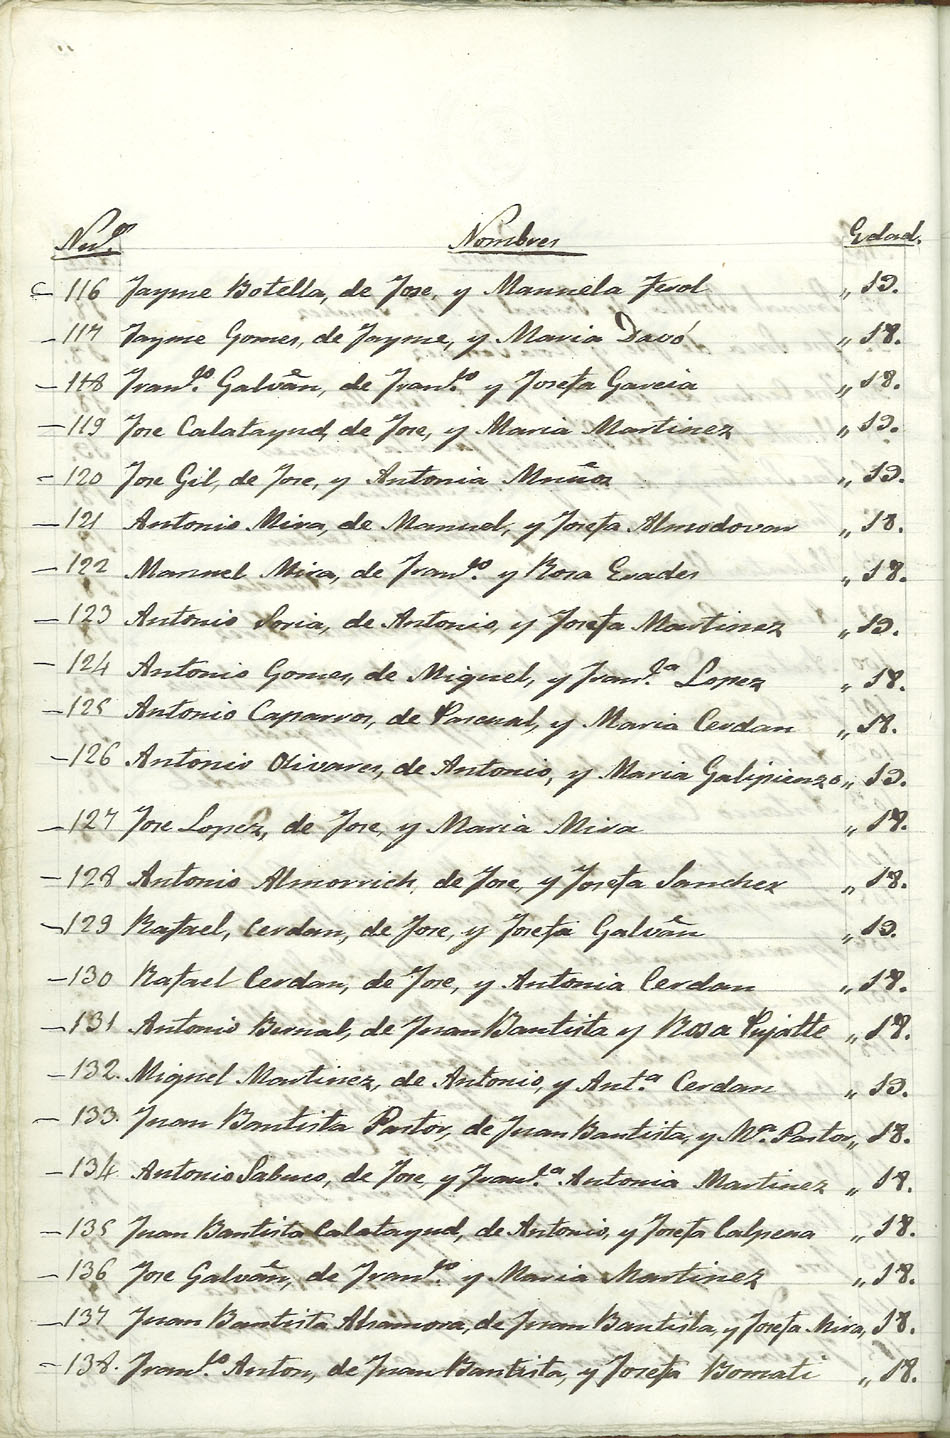 Num.º Nombres Edad.
116 Jayme Botella, de Jose, y Manuela Ferol „ 19.
117 Jayme Gomes, de Jayme, y Maria Davó „ 18.
118 Fran.co Galvañ, de Fran.co y Josefa Garcia „ 18.
119 Jose Calatayud, de Jose, y Maria Martinez „ 19.
120 Jose Gil, de Jose, y Antonia Muñoz „ 19.
121 Antonio Mira, de Manuel, y Josefa Almodovar „ 18.
122 Manuel Mira, de Fran.co y Rosa Erades „ 18.
123 Antonio Soria, de Antonio, y Josefa Martinez „ 19.
124 Antonio Gomes, de Miguel, y Fran.ca Lopez „ 18.
125 Antonio Caparros, de Pascual, y Maria Cerdan „ 18.
126 Antonio Olivares, de Antonio, y Maria Galipienzo „ 19.
127 Jose Lopez, de Jose, y Maria Mira „ 18.
128 Antonio Almorrich, de Jose, y Josefa Sanchez „ 18.
129 Rafael, Cerdan, de Jose, y Josefa Galvañ „ 19.
130 Rafael Cerdan, de Jose, y Antonia Cerdan „ 18.
131 Antonio Bernal, de Juan Bautista y Rosa Pujalte „ 18.
132. Miguel Martinez, de Antonio, y Ant.a Cerdan „ 19.
133. Juan Bautista Pastor, de Juan Bautista, y M.a Pastor „ 18.
134. Antonio Sabuco, de Jose, y Fran.ca Antonia Martinez „ 18.
135 Juan Bautista Calatayud, de Antonio, y Josefa Calpena „ 18.
136 Jose Galvañ, de Fran.co y Maria Martinez „ 18.
137 Juan Bautista Alzamora, de Juan Bautista, y Josefa Mira, 18.
138. Fran.co Anton, de Juan Bautista, y Josefa Bornati „ 18.